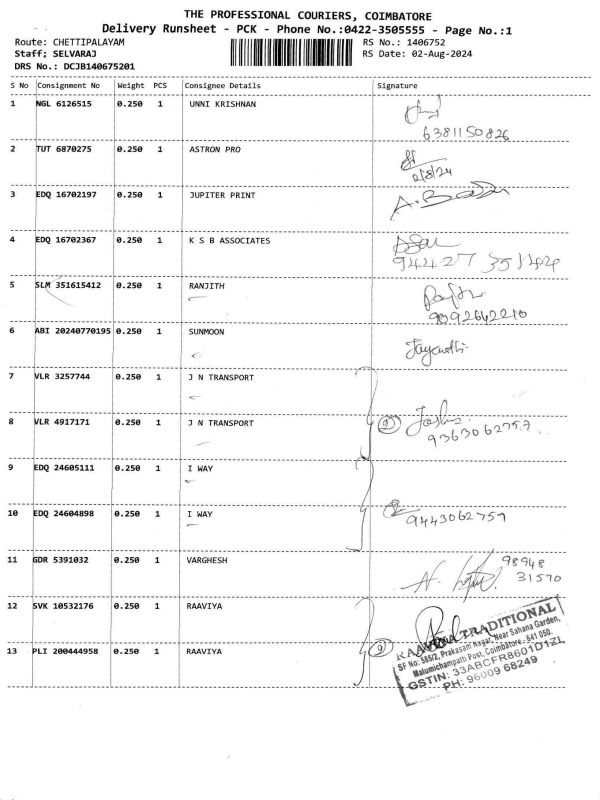 THE PROFESSIONAL COURIERS, COIMBATORE
Delivery Runsheet - PCK - Phone No.:0422-3505555 - Page No.:1
Route: CHETTIPALAYAM RS No.: 1406752
Staff; SELVARAJ RS Date: 02-Aug-2024
DRS No.: DCJB140675201
S No Consignment No Weight PCS Consignee Details Signature
1 NGL 6126515 0.250 1 UNNI KRISHNAN
6381150826
2 TUT 6870275 0.250 1 ASTRON PRO
2/8/24
3 EDQ 16702197 0.250 1 JUPITER PRINT
4 EDQ 16702367 0.250 1 K S B ASSOCIATES
94427 35144
5 SLM 351615412 0.250 1 RANJITH
9092642210
6 ABI 20240770195 0.250 1 SUNMOON Jayanthi
7 VLR 3257744 0.250 1 J N TRANSPORT
8 VLR 4917171 0.250 1 J N TRANSPORT 2
9363062757
9 EDQ 24605111 0.250 1 I WAY
10 EDQ 24604898 0.250 1 I WAY 9443062757
11 GDR 5391032 0.250 1 VARGHESH 98948
31570
12 SVK 10532176 0.250 1 RAAVIYA
13 PLI 200444958 0.250 1 RAAVIYA 2
TRADITIONAL
SF No: 585/2, Prakasam Nagar, Near Sahana Garden,
Malumichampatti Post, Coimbatore - 641 050.
GSTIN: 33ABCFR8601D1ZL
PH: 96009 68249